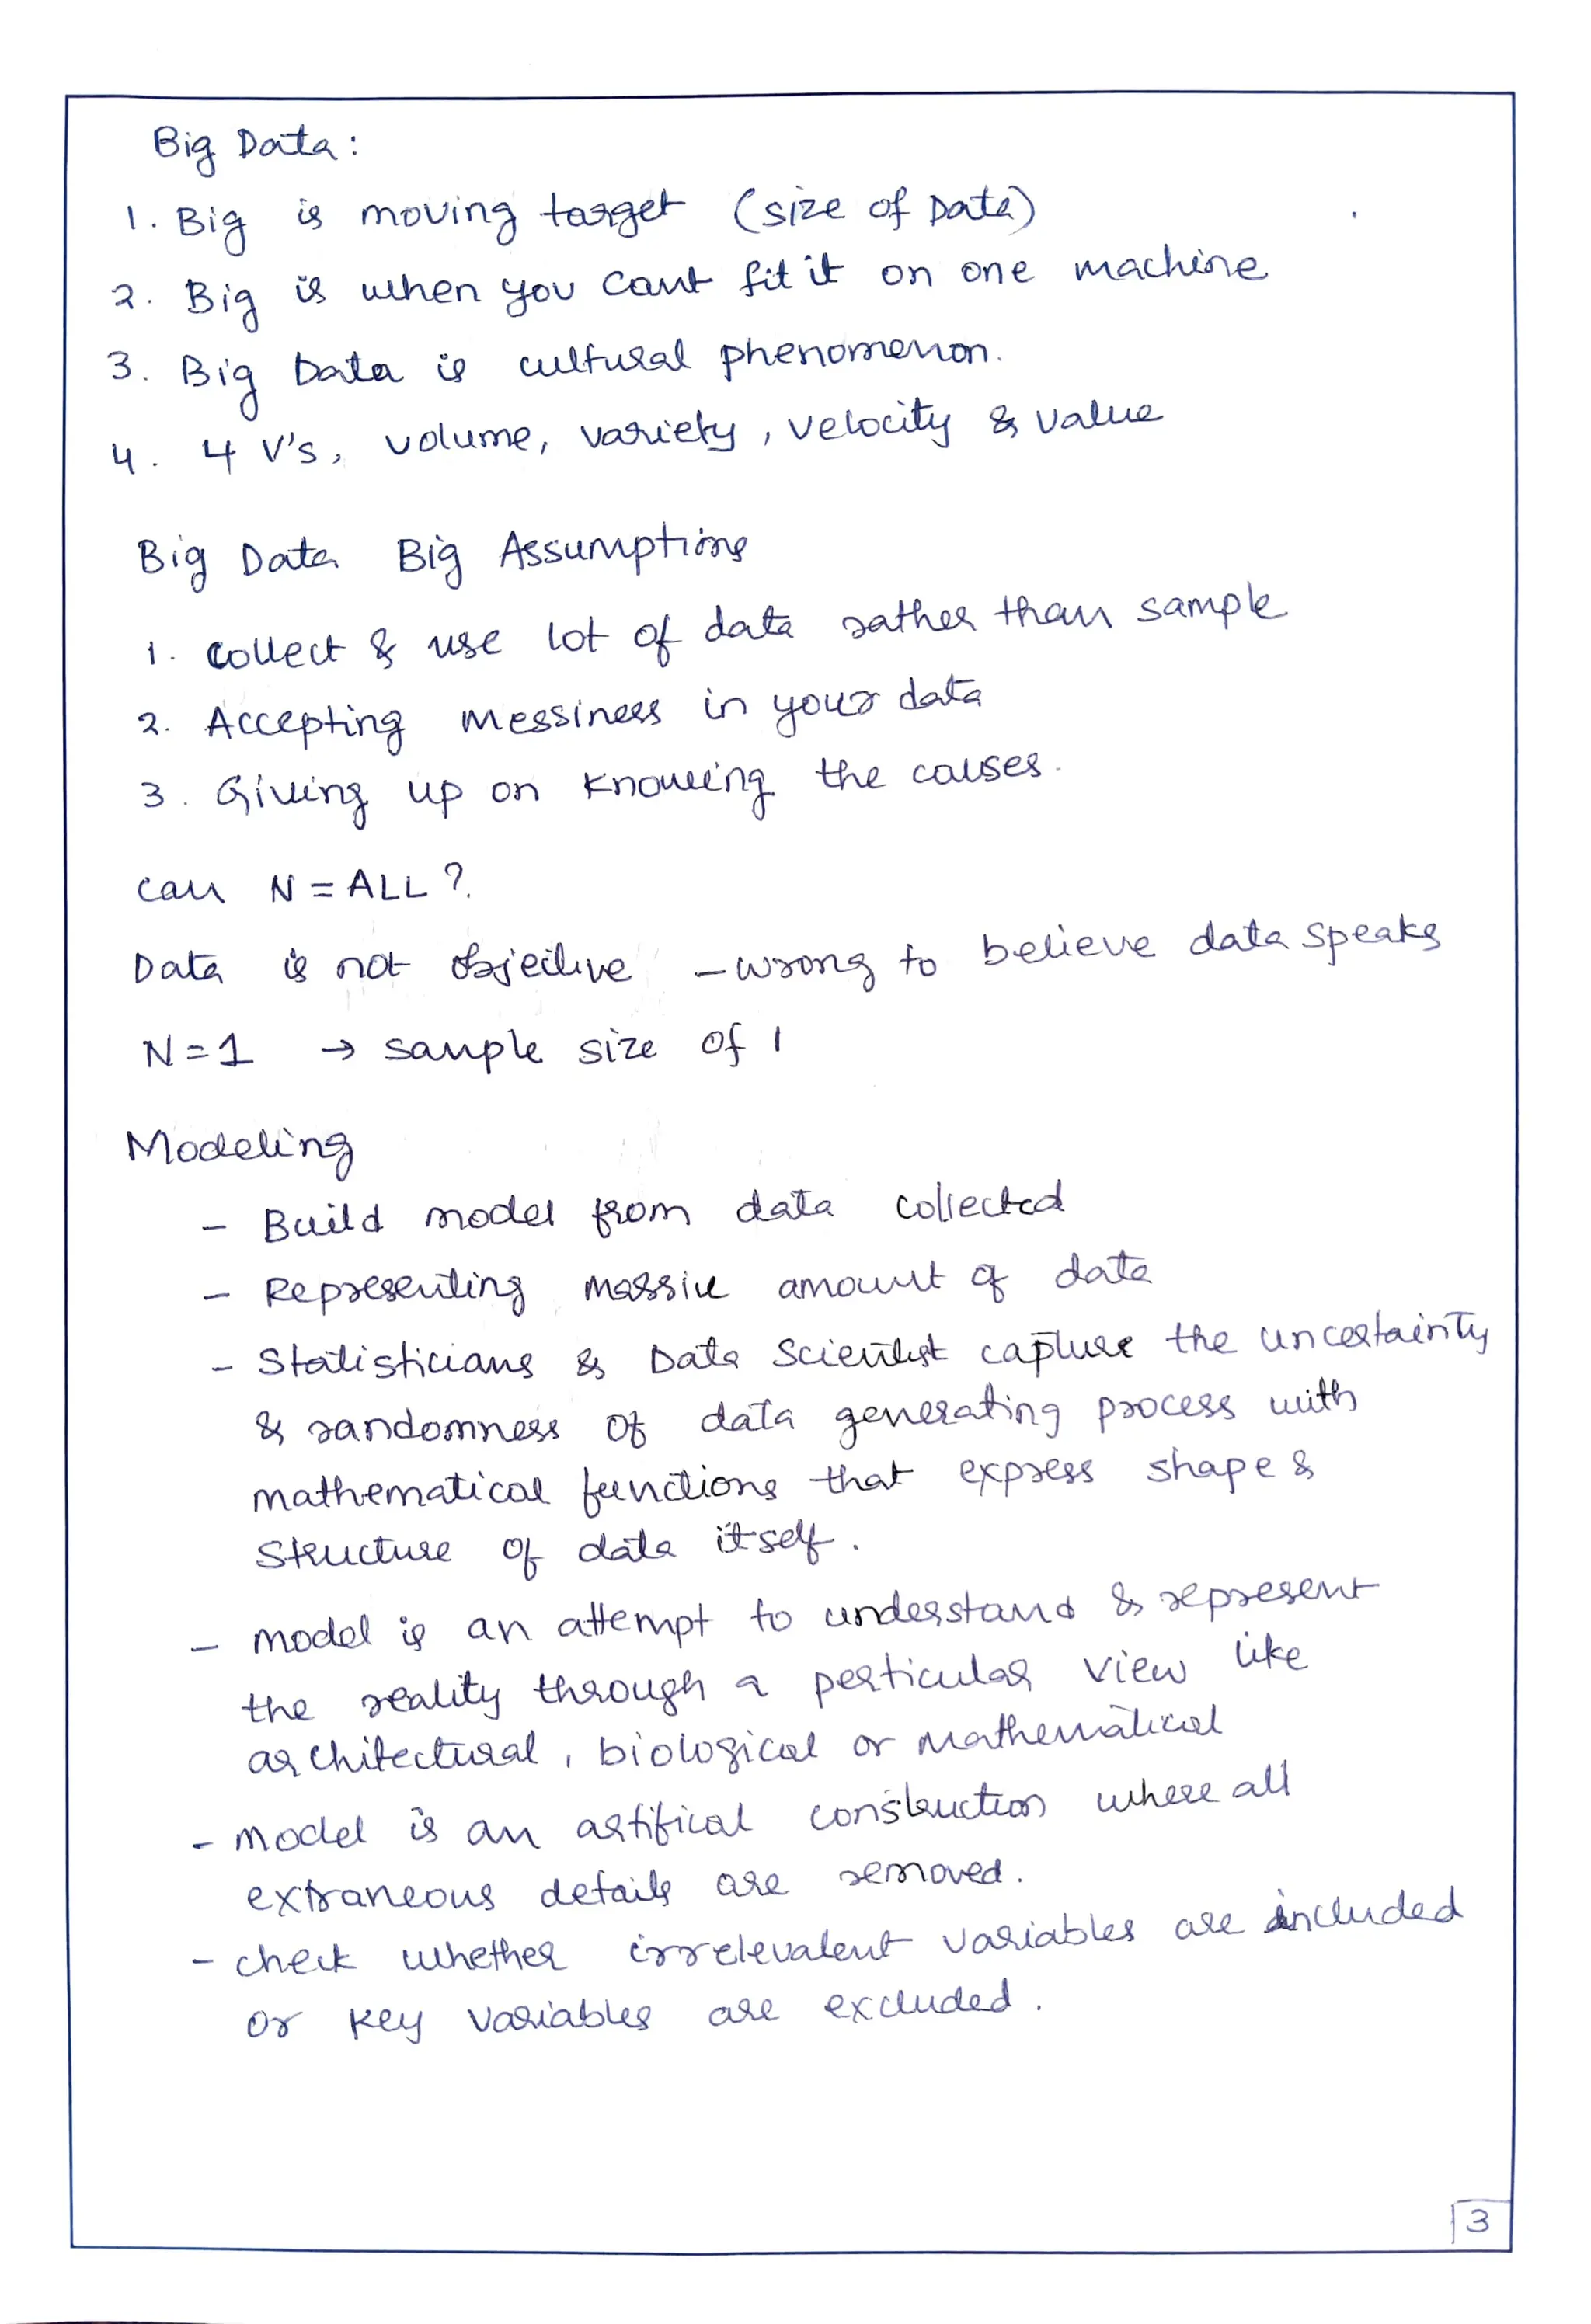 Big Data :
1. Big is moving target (size of Data)
2. Big is when you cant fit it on one machine
3. Big Data is cultural phenomenon.
4. 4 V's, volume, variety, velocity & value
Big Data Big Assumptions
1. collect & use lot of data rather than sample
2. Accepting messiness in your data
3. Giving up on knowing the causes.
can N = ALL ?
Data is not objective - wrong to believe data speaks
N = 1 → sample size of 1
Modeling
- Build model from data collected
- Representing massive amount of data
- Statisticians & Data Scientist capture the uncertainity
& randomness of data generating process with
mathematical functions that express shape &
structure of data itself.
- model is an attempt to understand & represent
the reality through a perticular view like
architectural, biological or mathematical
- model is an artifical construction where all
extraneous details are removed.
- check whether irrelevalent variables are included
or key variables are excluded.
3